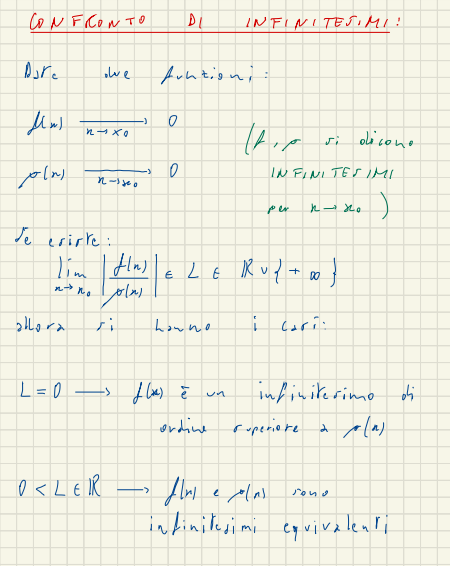 CONFRONTO DI INFINITESIMI:
Date due funzioni:
f(x) → 0
x→x₀
(f, g si dicono
g(x) → 0
x→x₀
INFINITESIMI
per x→x₀)
Se esiste:
lim |f(x)/g(x)| ∈ L ∈ ℝ ∪ {+∞}
x→x₀
allora si hanno i casi:
L = 0 → f(x) è un infinitesimo di
ordine superiore a g(x)
0 < L ∈ ℝ → f(x) e g(x) sono
infinitesimi equivalenti